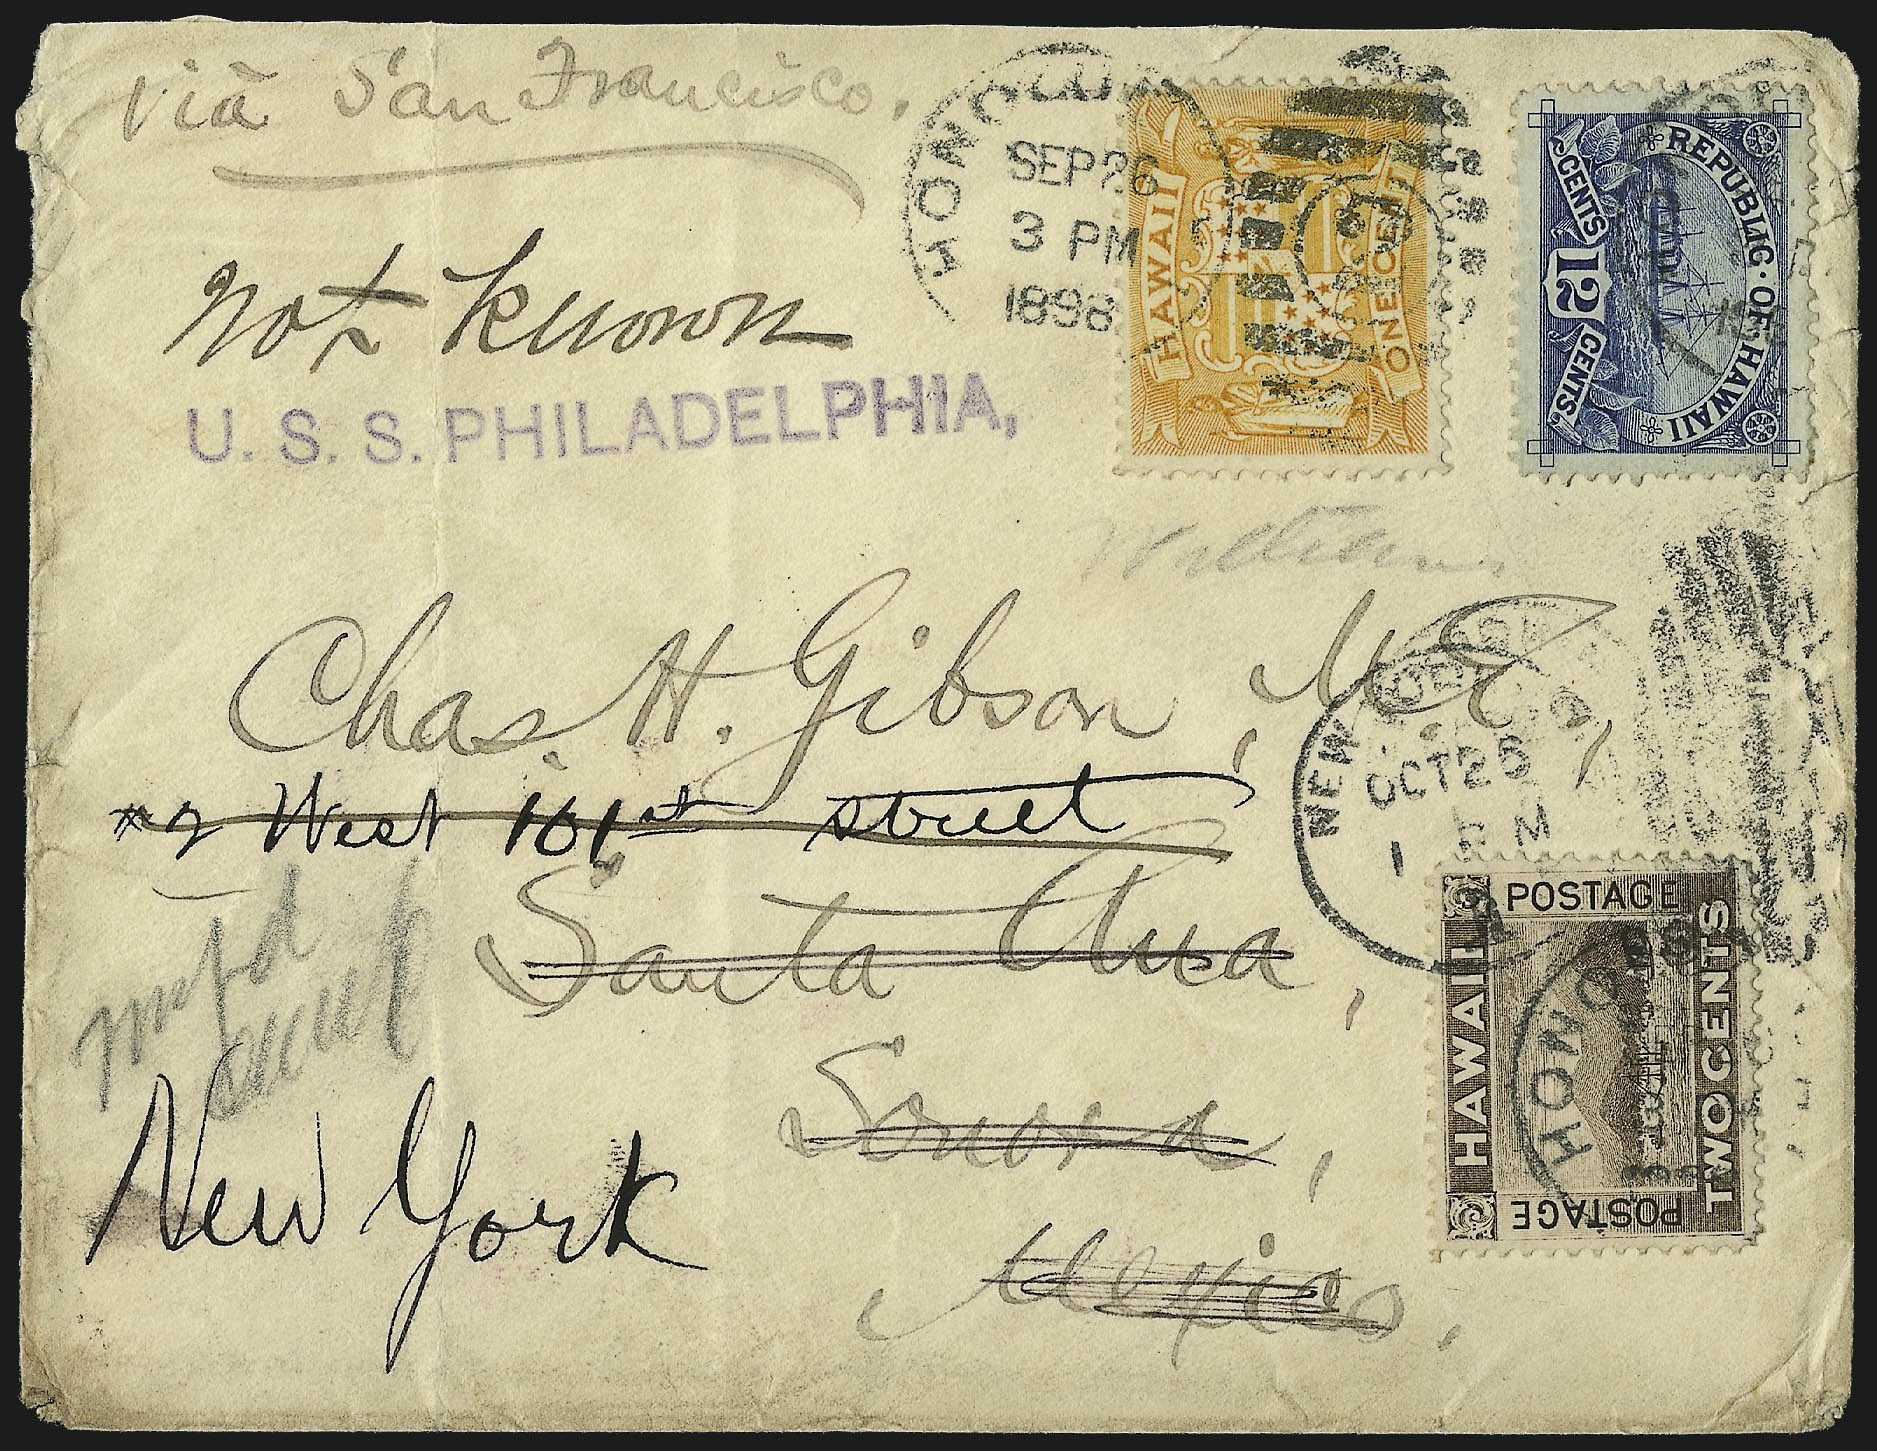 Via San Francisco.
HONOLU
SEP 26
3 PM
1898
HAWAII
ONE CENT
REPUBLIC · OF · HAWAII
12
CENTS
CENTS.
Not Known
U. S. S. PHILADELPHIA,
Chas. H. Gibson, M.E.,
#2 West 101st street
Santa Ana,
Sonora,
Mexico.
New York
NEW
OCT 25
1
M
POSTAGE
HAWAII
TWO CENTS
POSTAGE
HONO